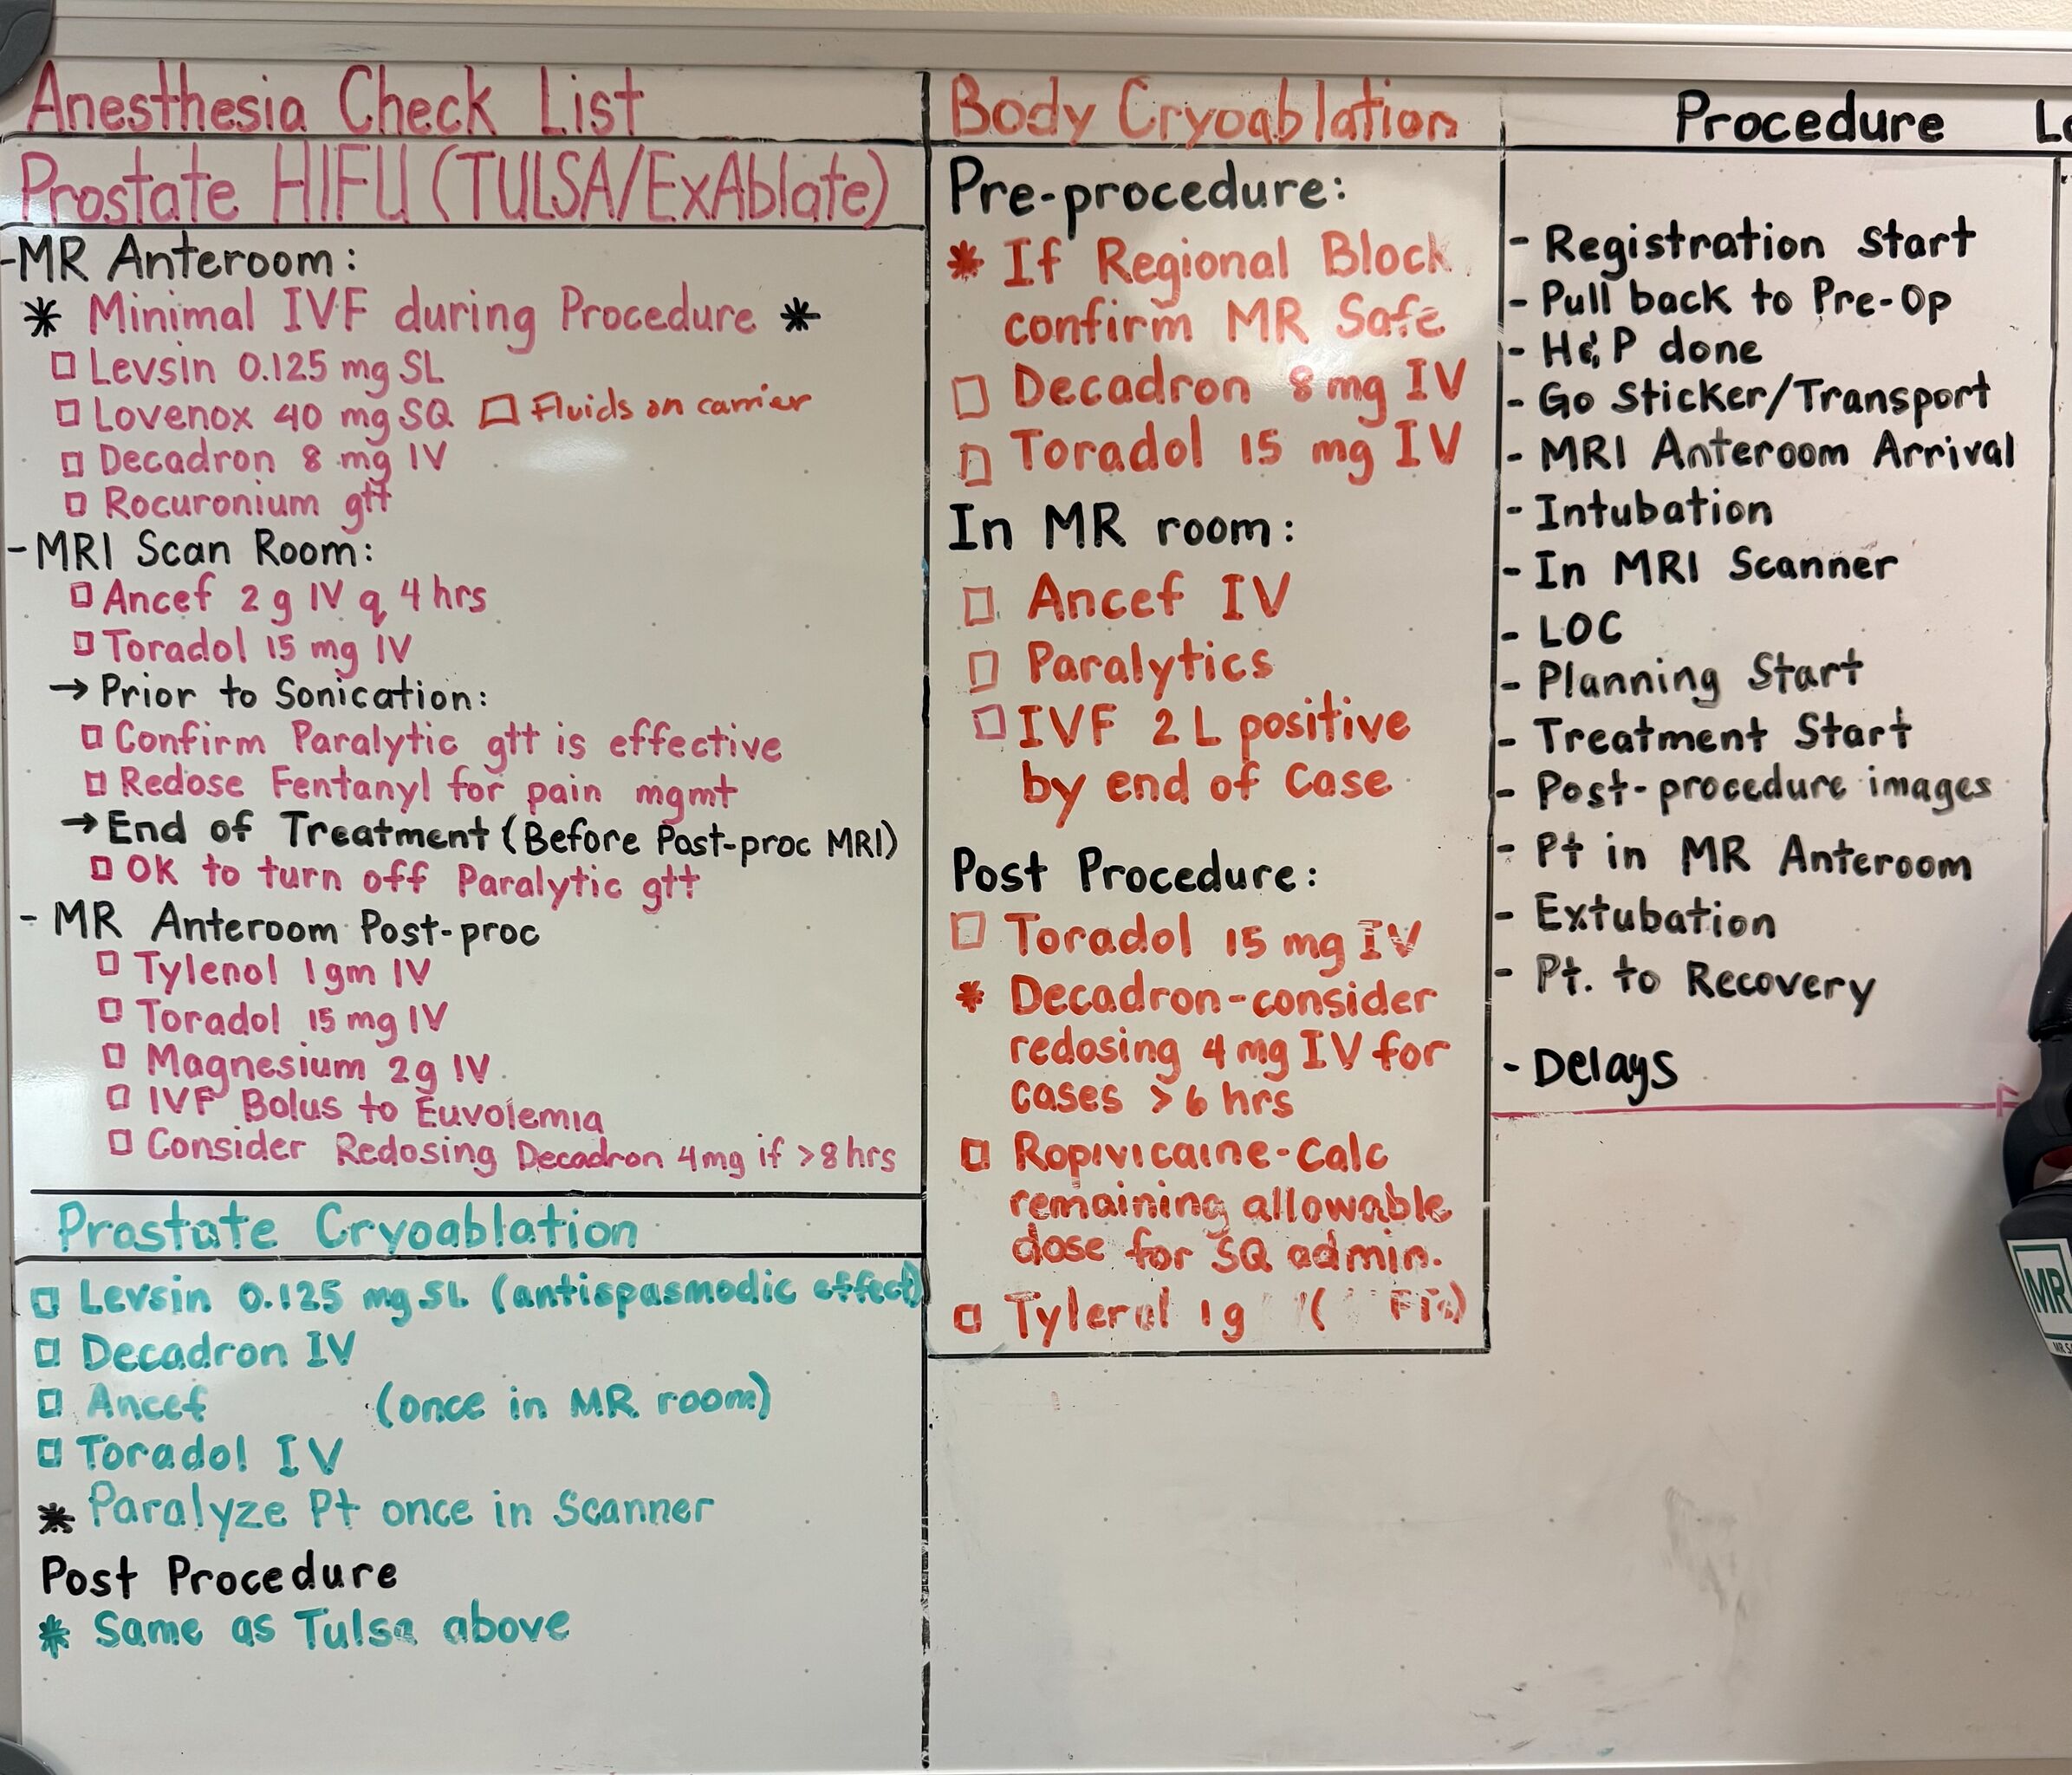 Anesthesia Check List
Prostate HIFU (TULSA/ExAblate)
-MR Anteroom:
* Minimal IVF during Procedure *
□ Levsin 0.125 mg SL
□ Lovenox 40 mg SQ □ Fluids on carrier
□ Decadron 8 mg IV
□ Rocuronium gtt
-MRI Scan Room:
□ Ancef 2g IV q 4 hrs
□ Toradol 15 mg IV
→ Prior to Sonication:
□ Confirm Paralytic gtt is effective
□ Redose Fentanyl for pain mgmt
→ End of Treatment (Before Post-proc MRI)
□ OK to turn off Paralytic gtt
- MR Anteroom Post-proc
□ Tylenol 1gm IV
□ Toradol 15 mg IV
□ Magnesium 2g IV
□ IVF Bolus to Euvolemia
□ Consider Redosing Decadron 4mg if >8 hrs
Prostate Cryoablation
□ Levsin 0.125 mg SL (antispasmodic effect)
□ Decadron IV
□ Ancef (once in MR room)
□ Toradol IV
* Paralyze Pt once in Scanner
Post Procedure
* Same as Tulsa above
Body Cryoablation
Pre-procedure:
* If Regional Block
confirm MR Safe
□ Decadron 8 mg IV
□ Toradol 15 mg IV
In MR room:
□ Ancef IV
□ Paralytics
□ IVF 2 L positive
by end of Case
Post Procedure:
□ Toradol 15 mg IV
* Decadron-consider
redosing 4 mg IV for
cases > 6 hrs
□ Ropivicaine-Calc
remaining allowable
dose for SQ admin.
□ Tylenol 1g
Procedure
- Registration Start
- Pull back to Pre-Op
- H&P done
- Go Sticker/Transport
- MRI Anteroom Arrival
- Intubation
- In MRI Scanner
- LOC
- Planning Start
- Treatment Start
- Post-procedure images
- Pt in MR Anteroom
- Extubation
- Pt. to Recovery
- Delays
MR